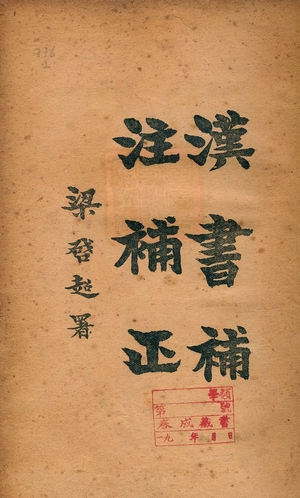 漢書補
注補正
梁啓超署
學類
第 號
春成藏書
一九 年 月 日